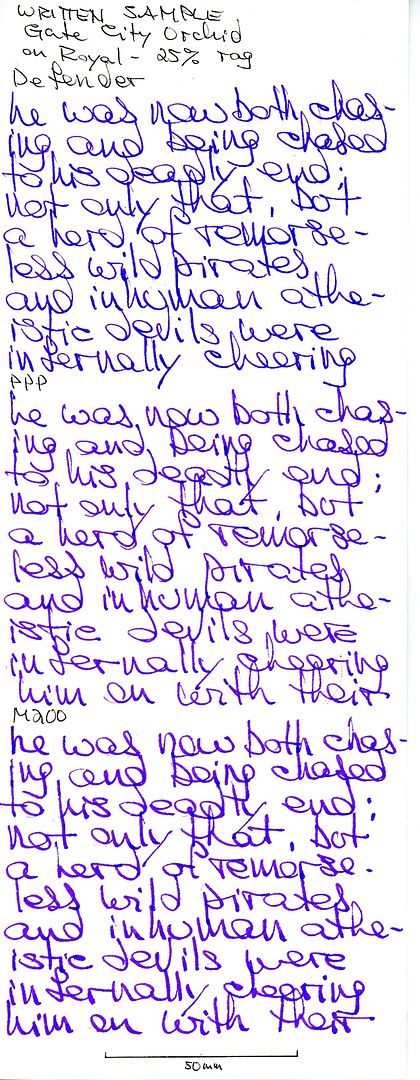 WRITTEN SAMPLE
Gate City Orchid
on Royal - 25% rag
Defender
he was now both chas-
ing and being chased
to his deadly end;
not only that, but
a herd of remorse-
less wild pirates
and inhuman athe-
istic devils were
infernally cheering
PPP
he was now both chas-
ing and being chased
to his deadly end;
not only that, but
a herd of remorse-
less wild pirates
and inhuman athe-
istic devils were
infernally cheering
him on with their
M200
he was now both chas-
ing and being chased
to his deadly end;
not only that, but
a herd of remorse-
less wild pirates
and inhuman athe-
istic devils were
infernally cheering
him on with their
50mm